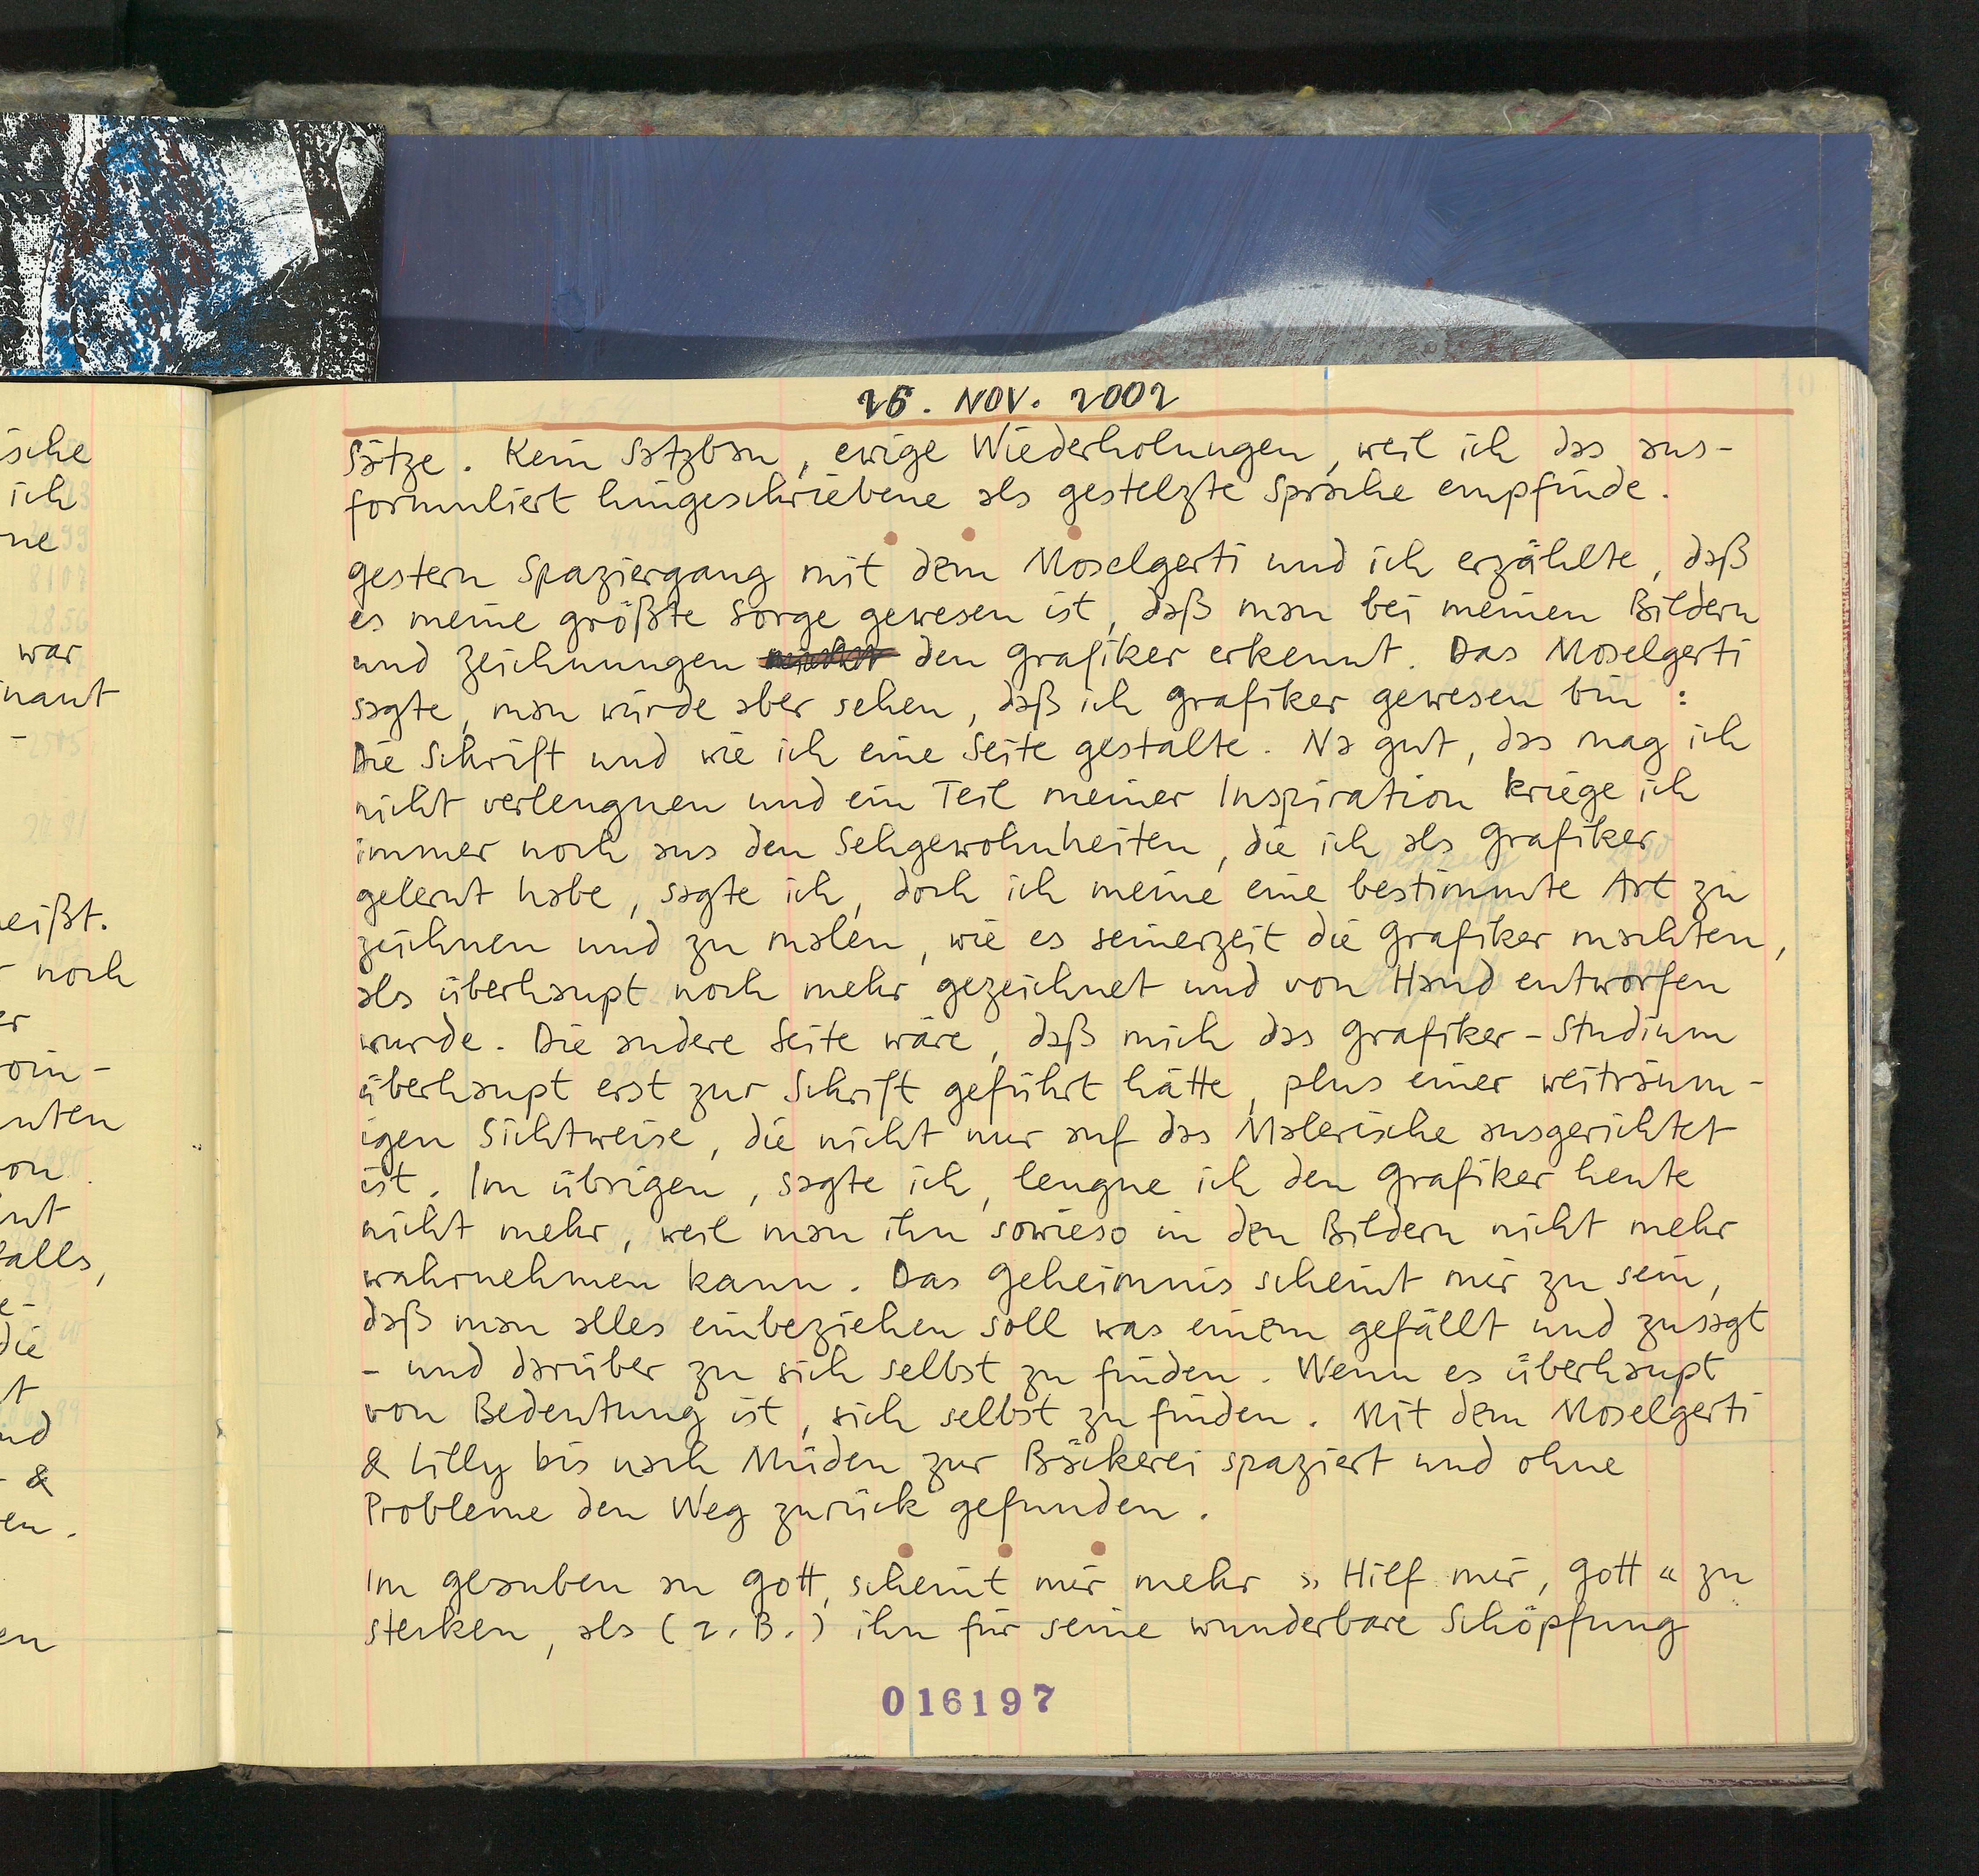 ische
ich
ne
war
inant
-
eißt.
- noch
er
oin-
nten
on
int
falls,
e-
die
nt
nd
- &
en.
en
26. NOV. 2002
Sätze. Kein Satzbau, ewige Wiederholungen, weil ich das aus-
formuliert hingeschriebene als gestelzte Sprache empfinde.
gestern Spaziergang mit dem Moselgerti und ich erzählte, daß
es meine größte Sorge gewesen ist, daß man bei meinen Bildern
und Zeichnungen den Grafiker erkennt. Das Moselgerti
sagte, man würde aber sehen, daß ich Grafiker gewesen bin :
Die Schrift und wie ich eine Seite gestalte. Na gut, das mag ich
nicht verleugnen und ein Teil meiner Inspiration kriege ich
immer noch aus den Sehgewohnheiten, die ich als Grafiker
gelernt habe, sagte ich, doch ich meine eine bestimmte Art zu
zeichnen und zu malen, wie es seinerzeit die Grafiker machten,
als überhaupt noch mehr gezeichnet und von Hand entworfen
wurde. Die andere Seite wäre, daß mich das Grafiker-Studium
überhaupt erst zur Schrift geführt hätte, plus einer weiträum-
igen Sichtweise, die nicht nur auf das Malerische ausgerichtet
ist. Im übrigen, sagte ich, leugne ich den Grafiker heute
nicht mehr, weil man ihn sowieso in den Bildern nicht mehr
wahrnehmen kann. Das Geheimnis scheint mir zu sein,
daß man alles einbeziehen soll was einem gefällt und zusagt
- und darüber zu sich selbst zu finden. Wenn es überhaupt
von Bedeutung ist, sich selbst zu finden. Mit dem Moselgerti
& Lilly bis nach Müden zur Bäckerei spaziert und ohne
Probleme den Weg zurück gefunden.
Im Glauben an Gott, scheint mir mehr »Hilf mir, Gott« zu
stecken, als (z.B.) ihn für seine wunderbare Schöpfung
016197